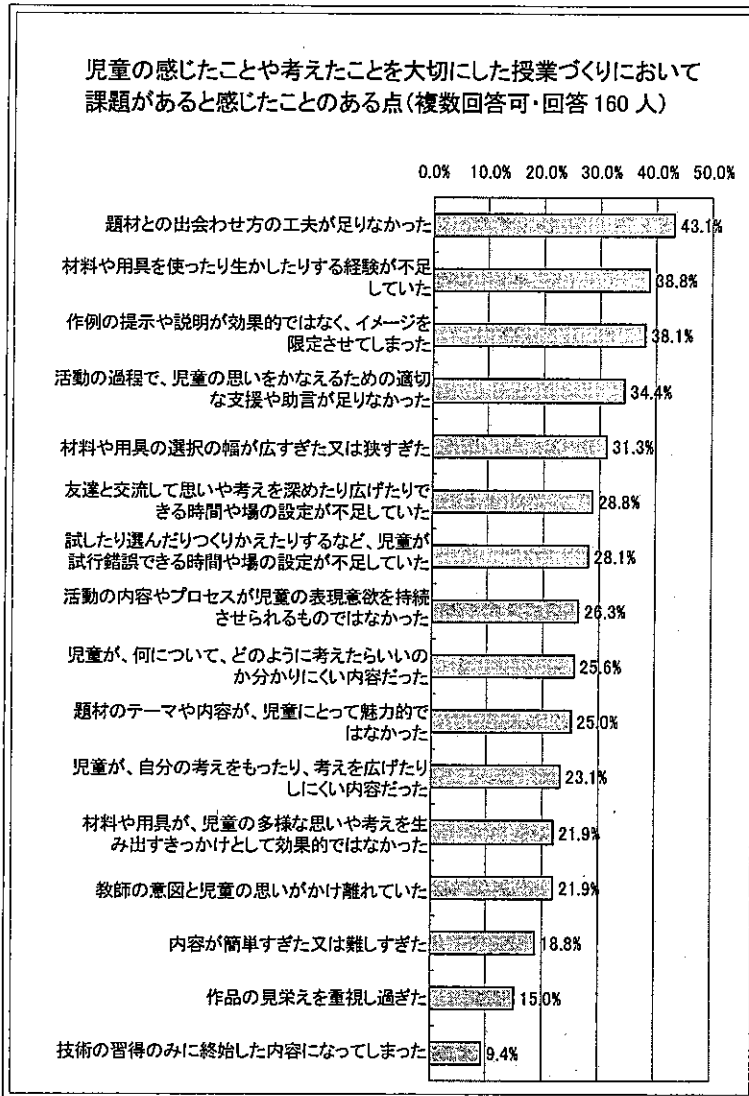 児童の感じたことや考えたことを大切にした授業づくりにおいて
課題があると感じたことのある点(複数回答可・回答 160 人)
0.0% 10.0% 20.0% 30.0% 40.0% 50.0%
題材との出会わせ方の工夫が足りなかった 43.1%
材料や用具を使ったり生かしたりする経験が不足
していた 38.8%
作例の提示や説明が効果的ではなく、イメージを
限定させてしまった 38.1%
活動の過程で、児童の思いをかなえるための適切
な支援や助言が足りなかった 34.4%
材料や用具の選択の幅が広すぎた又は狭すぎた 31.3%
友達と交流して思いや考えを深めたり広げたりで
きる時間や場の設定が不足していた 28.8%
試したり選んだりつくりかえたりするなど、児童が
試行錯誤できる時間や場の設定が不足していた 28.1%
活動の内容やプロセスが児童の表現意欲を持続
させられるものではなかった 26.3%
児童が、何について、どのように考えたらいいの
か分かりにくい内容だった 25.6%
題材のテーマや内容が、児童にとって魅力的で
はなかった 25.0%
児童が、自分の考えをもったり、考えを広げたり
しにくい内容だった 23.1%
材料や用具が、児童の多様な思いや考えを生
み出すきっかけとして効果的ではなかった 21.9%
教師の意図と児童の思いがかけ離れていた 21.9%
内容が簡単すぎた又は難しすぎた 18.8%
作品の見栄えを重視し過ぎた 15.0%
技術の習得のみに終始した内容になってしまった 9.4%